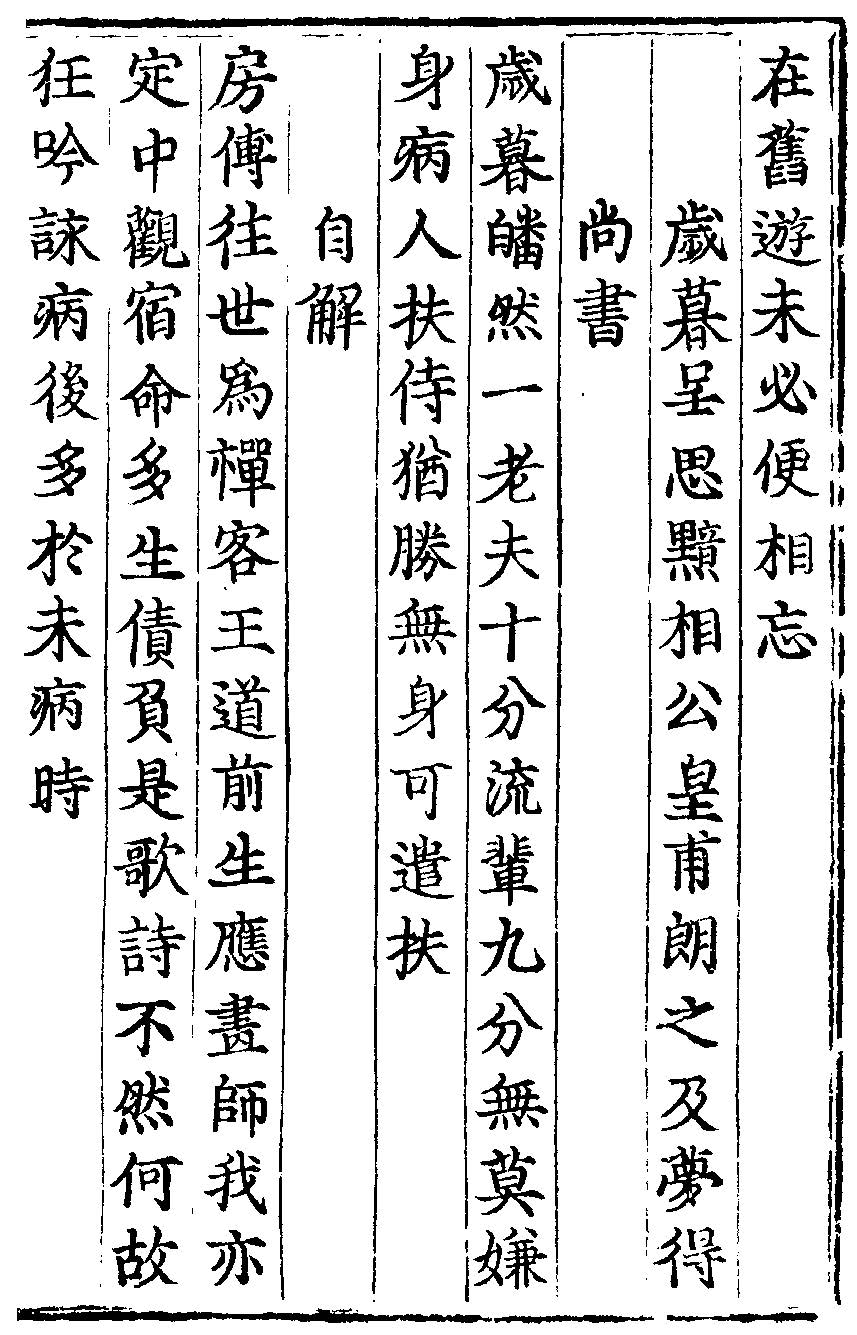 在舊遊未必便相忘
歲暮呈思黯相公皇甫朗之及夢得
尚書
歲暮皤然一老夫十分流輩九分無莫嫌
身病人扶侍猶勝無身可遣扶
自解
房傅往世爲禪客王道前生應畫師我亦
定中觀宿命多生債負是歌詩不然何故
狂吟詠病後多於未病時